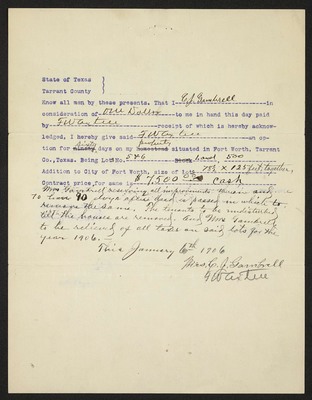 State of Texas
Tarrant County
Know all men by these presents. That I C.J. Gambrell in
consideration of One Dollar to me in hand this day paid
by G W Axtell receipt of which is hereby acknow-
ledged, I hereby give said G W Axtell an op-
tion for ninety days on my property situated in Fort Worth, Tarrant
Co., Texas. Being Lot No. 5 & 6 Block
Addition to City of Fort Worth, size of lots x 135 ft together,
Contract price for same is $ 7500 00 Cash
Mrs Gambrell reserving all improvements thereon and
to have 90 days after deed is passed in which to
remove the same. The tenants to be undisturbed
till the houses are removed. And Mrs Gambrell
to be relieved of all taxes on said lots for the
year 1906.
This January 6th 1906
Mrs. C. J. Gambrell
G W Axtell